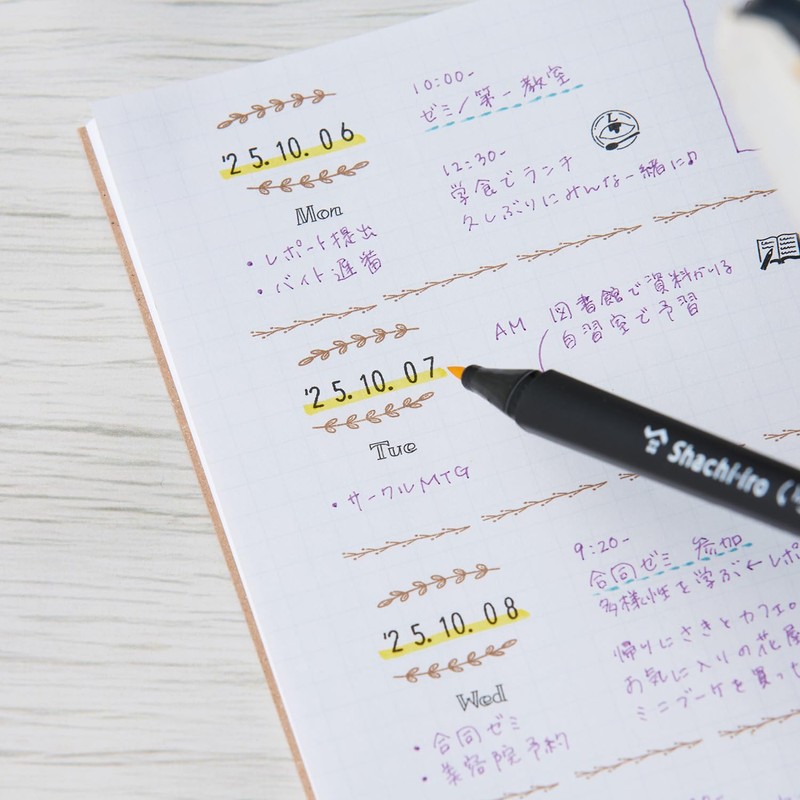 '25.10.06
Mon
・レポート提出
・バイト遅番
10:00-
ゼミ/第一教室
12:30-
学食でランチ
久しぶりにみんな一緒に♪
'25.10.07
Tue
・サークルMTG
AM 図書館で資料かいる
自習室で予習
Shachi-iro
'25.10.08
Wed
・合同ゼミ
・美容院予約
9:20-
合同ゼミ 参加
多様性を学ぶ←レポ
帰りにさきとカフェ。
お気に入りの花屋
ミニブーケを買っ